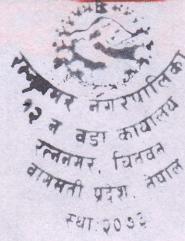 रत्ननगर नगरपालिका
१२ न वडा कार्यालय
रत्ननगर, चितवन
वागमती प्रदेश, नेपाल
स्था २०७३